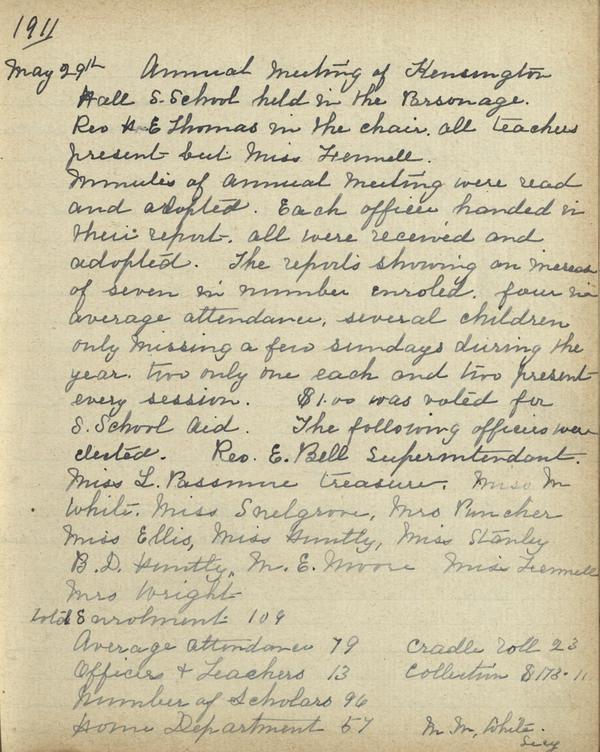 1911
May 29th Annual Meeting of Kensington
Hall S. School held in the Parsonage.
Rev H. E Thomas in the chair. all teachers
present but Miss Fennell.
Minutes of annual Meeting were read
and adopted. Each officer handed in
their report. all were received and
adopted. The reports showing an increas
of seven in number enroled. four in
average attendance, several children
only missing a few sundays during the
year. two only one each and two present
every session. $1.00 was voted for
S. School Aid. The following officers were
elected. Rev. E. Bell Superintendant.
Miss L. Passmore treasure. Miss M
White. Miss Snelgrove, Mrs Puncher
Miss Ellis, Miss Huntly, Miss Stanley
B. D. Huntly, M. E. Moore Miss Fennell
Mrs Wright
total Enrolment 109
Average attendance 79 Cradle roll 23
Officers & Teachers 13 Collection $178.11
Number of Scholars 96
Home Department 57 M. M. White.
Secy